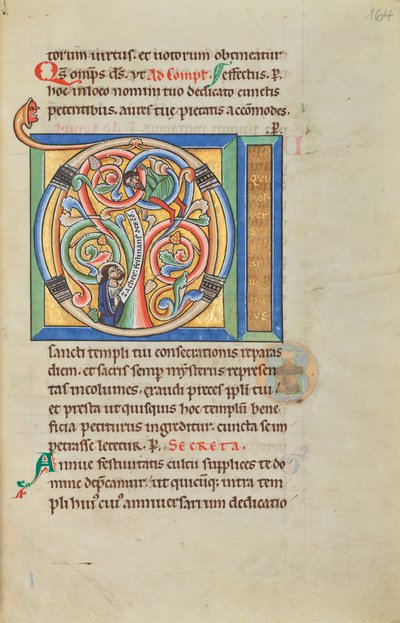 164
torum uirtus. et uotorum obtineatur
Qs omps ds. ut Ad Compl. effectus. P.
hoc in loco nomini tuo dedicato cunctis
petentibus. aures tue pietatis accomodes.
P.
sancti templi tui consecrationis reparas
diem. et sacris semp mysteriis represen
tas incolumes. exaudi preces ppli tui/
et presta ut quisquis hoc templum bene
ficia petiturus ingreditur. cuncta se im
petrasse letetur. P. SECRETA.
Annue festiuitatis cultu supplices te do
mine depcamur/ ut quicuq; intra tem
pli hui9 cui9 anniuersarium dedicatio